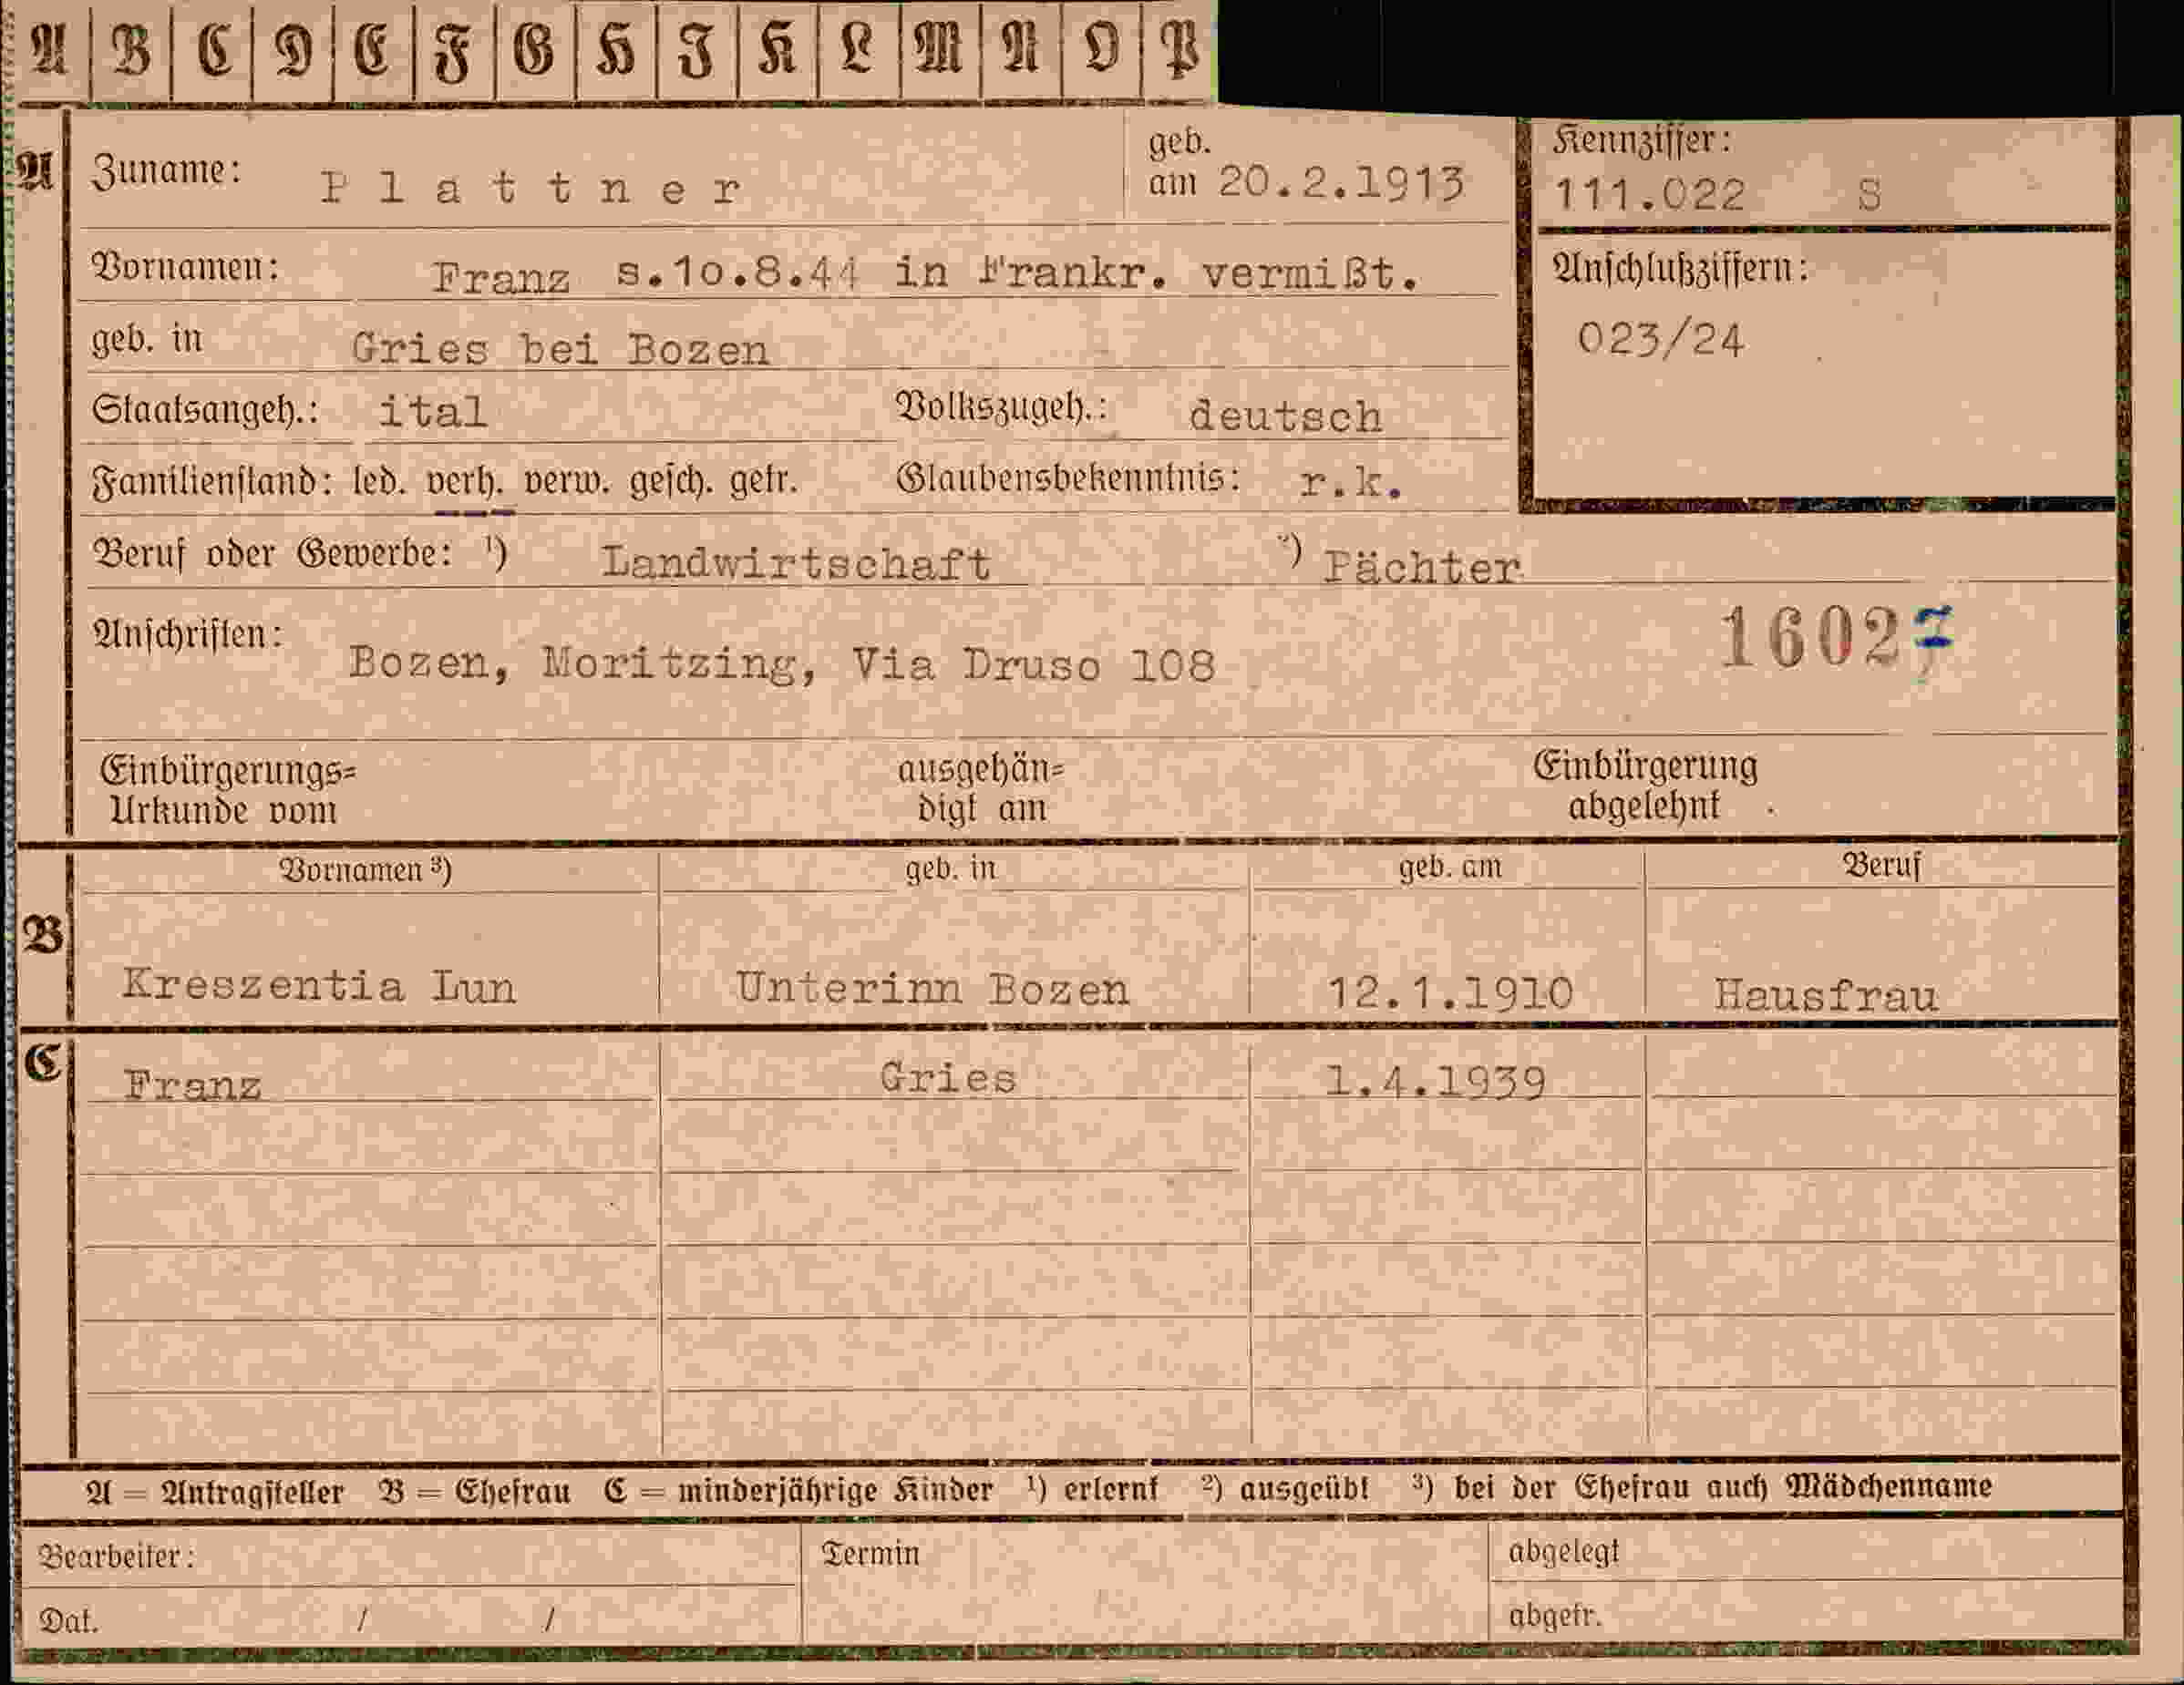 A B C D E F G H I K L M N O P
A Zuname: Plattner geb. am 20.2.1913 Kennziffer: 111.022 S
Vornamen: Franz s.10.8.44 in Frankr. vermißt. Anschlußziffern:
geb. in Gries bei Bozen 023/24
Staatsangeh.: ital Volkszugeh.: deutsch
Familienstand: led. verh. verw. gesch. getr. Glaubensbekenntnis: r.k.
Beruf oder Gewerbe: ¹) Landwirtschaft ²) Pächter
Anschriften: Bozen, Moritzing, Via Druso 108 16027
Einbürgerungs= ausgehän= Einbürgerung
Urkunde vom digt am abgelehnt
Vornamen ³) geb. in geb. am Beruf
B Kreszentia Lun Unterinn Bozen 12.1.1910 Hausfrau
C Franz Gries 1.4.1939
A = Antragsteller B = Ehefrau C = minderjährige Kinder ¹) erlernt ²) ausgeübt ³) bei der Ehefrau auch Mädchenname
Bearbeiter: Termin abgelegt
Dat. / / abgetr.